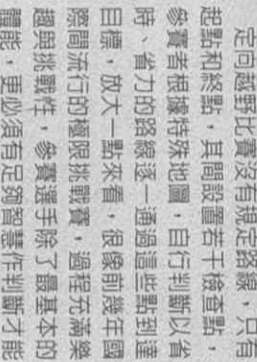 定向越野比賽沒有規定路線,只有
起點和終點,其間設置若干檢查點,
參賽者根據特殊地圖,自行判斷以省
時、省力的路線逐一通過這些點到達
目標,放大一點來看,很像前幾年國
際間流行的極限挑戰賽,過程充滿樂
趣與挑戰性,參賽選手除了最基本的
體能,更必須有足夠智慧作判斷才能